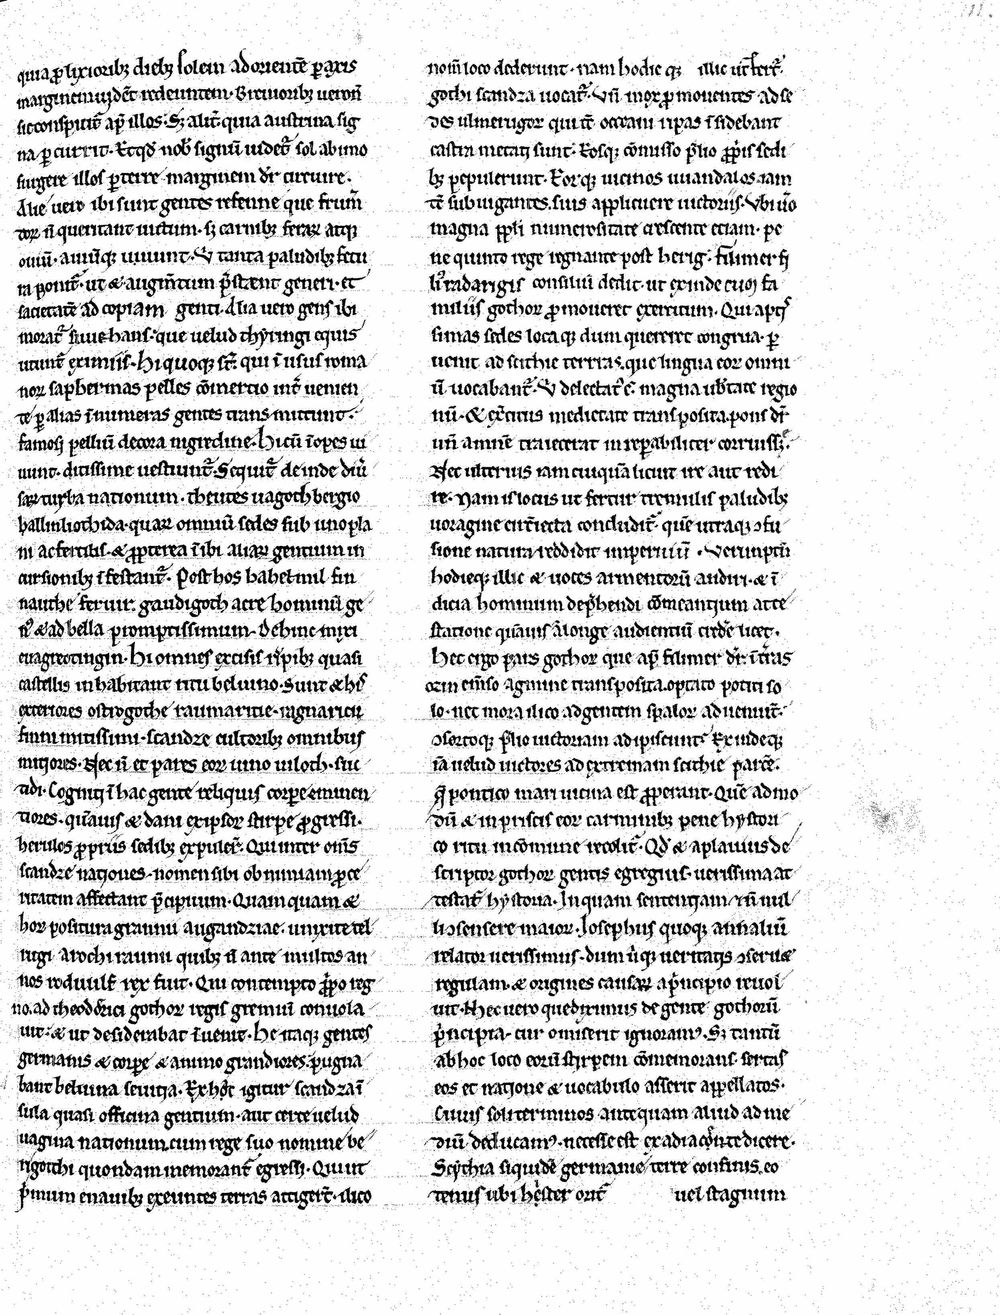 quia ꝓlixiorib; dieb; solem ad orientē ꝑ axis
marginem uidēt redeuntem. Breuiorib; ueroñ
sic conspicit̄ apͥ illos. Sꝫ alit̄. quia austrina sig
na ꝑcurrit. Et qd nob̄ signū uidet̄ sol ab imo
surgere illos ꝑ terre marginem dr̄ circuire.
Alie uero ibi sunt gentes refenne que frum̄
tor ñ queritant uictum. sꝫ carnib; feraꝝ atqꝫ
ouiū. auiūqꝫ uiuunt. Vͥ tanta paludib; fetu
ra ponit̄. ut & augm̄tum p̄stent generi. et
sacietatē ad copiam genti. Alia uero gens ibi
morat̄ suuehans. que uelud thyringi equis
utunt̄ eximiis. Hi quoqꝫ st̄. qui ī usus roma
noꝝ saphermas pelles cōmertio int̄ uenien
te ꝑ alias īnumeras gentes transmittunt.
famosi pelliū decora nigredine. Hi cū īopes ui
uunt. ditissime uestiunt̄. Sequit̄ deinde diū
saꝝ turba nationum. theutes uagoth bergio
hallin liothida. quaꝝ omniū sedes sub uno pla
ni ac fertilis. & ꝓpterea ībi aliaꝝ gentium in
cursionib; īfestant̄. Post hos hahelmil fin
naithe feruir. gaudigoth acre hominū ge
nͥ & ad bella promptissimum. Dehinc mixi
euagreotingin. Hi omnes excisis rupib; quasi
castellis inhabitant ritu beluino. Sunt & hiͥ
exteriores ostrogothe raumaritie. ragnaricii
finni mitissimi. scandze cultorib; omnibus
mitiores. Nec ñ et pares eoꝝ uino uiloth. sue
tidi. Cogniti ī hac gente reliquis corꝑe eminen
tiores. quāuis & dani ex ipsoꝝ stirpe ꝓgressi.
herulos ꝓpriis sedib; expuler̄t. Qui inter om̄s
scandze nationes. nomen sibi ob nimiam ꝓce
ritatem affectant p̄cipuum. Quamquam &
hoꝝ positura granni augandziae. unixite tel
rugi arochi ranni quib; ñ ante multos an
nos roduulf̄ rex fuit. Qui contempto ꝓprio reg
no. ad theodorici gothoꝝ regis gremiū conuola
uit. & ut desiderabat īuenit. He itaqꝫ gentes
germanis & corꝑe & animo grandiores. pugna
bant beluina seuitia. Ex hac igitur scandza ī
sula quasi officina gentium. aut certe uelud
uagina nationum. cum rege suo nomine be
rigothi quondam memorant̄ egressi. Qui ut
p̄mum enauib; exeuntes terras attiger̄t. ilico
nom̄ loco dederunt. nam hodie qꝫ illic ut fert̄.
gothi scandza uocat̄. Vñ mox ꝓmouentes ad se
des ulmerugoꝝ qui tc̄ occeani ripas īsidebant
castra metati sunt. Eosqꝫ cōmisso p̄lio ꝓpͥis sedi
b; pepulerunt. Eoꝝqꝫ uicinos uuandalos iam
tc̄ subiugantes. suis applicuere uictoriis. Vbi uͦo
magna ppl̄i numerositate crescente etiam. pe
ne quinto rege regnante post berig. filimer fi
lͥo gadarigis consiliū dedit. ut exinde cuo̧ fa
miliis gothoꝝ ꝓmoueret exercitum. Qui aptis
simas sedes loca qꝫ dum quereret congrua. ꝑ
uenit ad scithie terras. que lingua eoꝝ oīum
ū uocabant̄. Vͥ delectat̄ ē. magna ub̄tate regio
nū. & ex̄citus medietate transposita. pons dr̄
uñ amnē traiecerat inreꝑabiliter corruiss̄.
Nec ulterius iam cuiquā licuit ire aut redi
re. Nam is locus ut fertur tremulis paludib;
uoragine circūiecta concludit̄. quē utraqꝫ ↄfu
sione natura reddidit imperuiū. Verumptn̄
hodieqꝫ illic & uoces armentorū audiri. & ī
dicia hominum dep̄hendi cōmeantium atte
statione quāuis ālonge audientiū credē licet.
Hec ergo pars gothoꝝ que apͥ filimer dr̄ ītras
ozin emēso agmine transposita. optato potiti so
lo. nec mora ilico ad gentem spaloꝝ aduenit̄.
ↄsertoqꝫ p̄lio uictoriam adipiscunt̄. Exindeqꝫ
iā uelud uictores ad extremam scithie partē.
q̄ pontico mari uicina est ꝓperant. Quē admo
dū & in priscis eoꝝ carminib; pene hystori
co ritu in cōmune recolit̄. Qd̄ & aplauius de
scriptor gothoꝝ gentis egregius. uerissima at
testat̄ hystoria. In quam sententiam nñ nul
li ↄsensere maioꝝ. Iosephus quoqꝫ annaliū
relator uerissimus. dum ubiqꝫ ueritatis ↄseruͣe
regulam. & origines causaꝝ ap̄ncipio reuol
uit. Hec uero que diximus de gente gothorū
p̄ncipia. cur omiserit ignoramꝰ. Sꝫ tantū
ab hoc loco eorū stirpem cōmemorans. scitas
eos et natione & uocabulo asserit appellatos.
Cuius soli terminos antequam aliud ad me
diū deducamꝰ. necesse est ex adiacēnte dicere.
Scythia siquidē germanie terre confinis. eo
tenus ubi hyster orit̄ uel stagnum